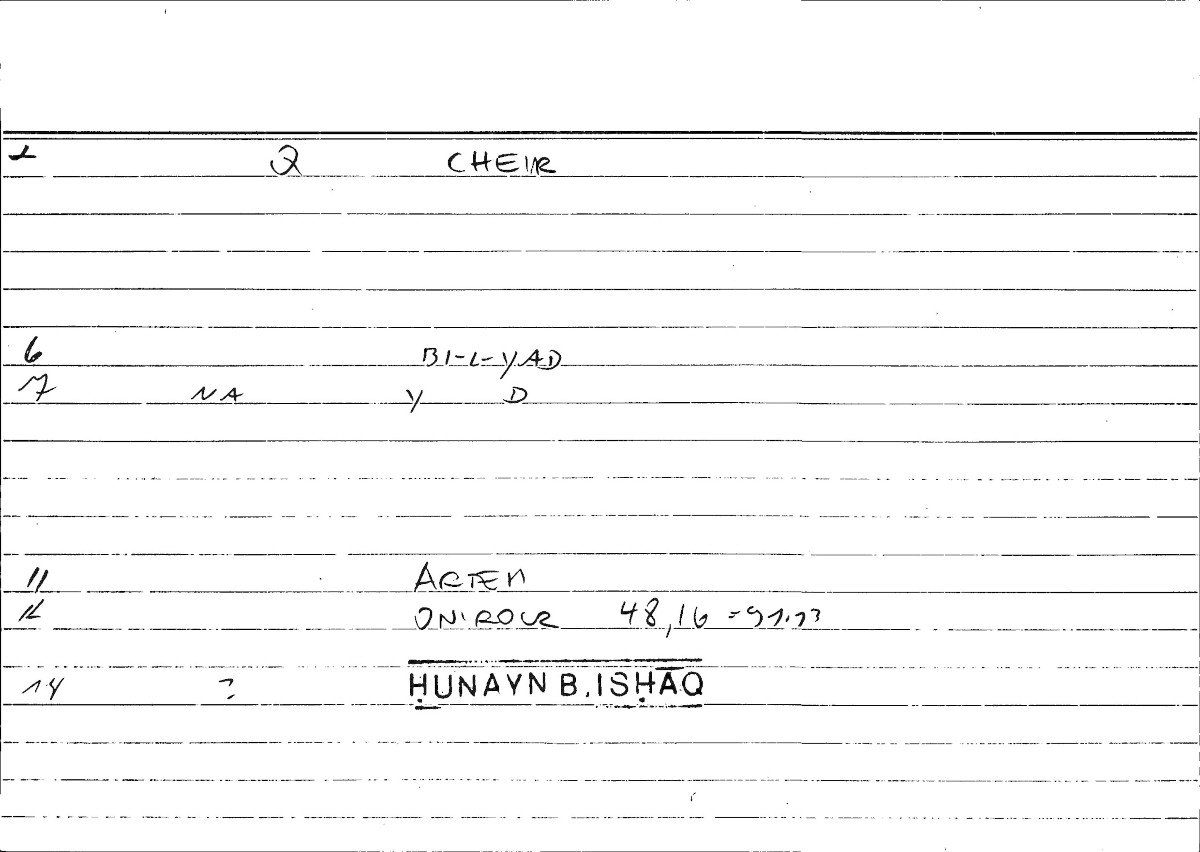 1 Q CHEIR
6 BI-L-YAD
7 NA Y D
11 ARTEM
12 ONIROCR 48,16 = 91.13
14 ? ḤUNAYN B. ISḤĀQ